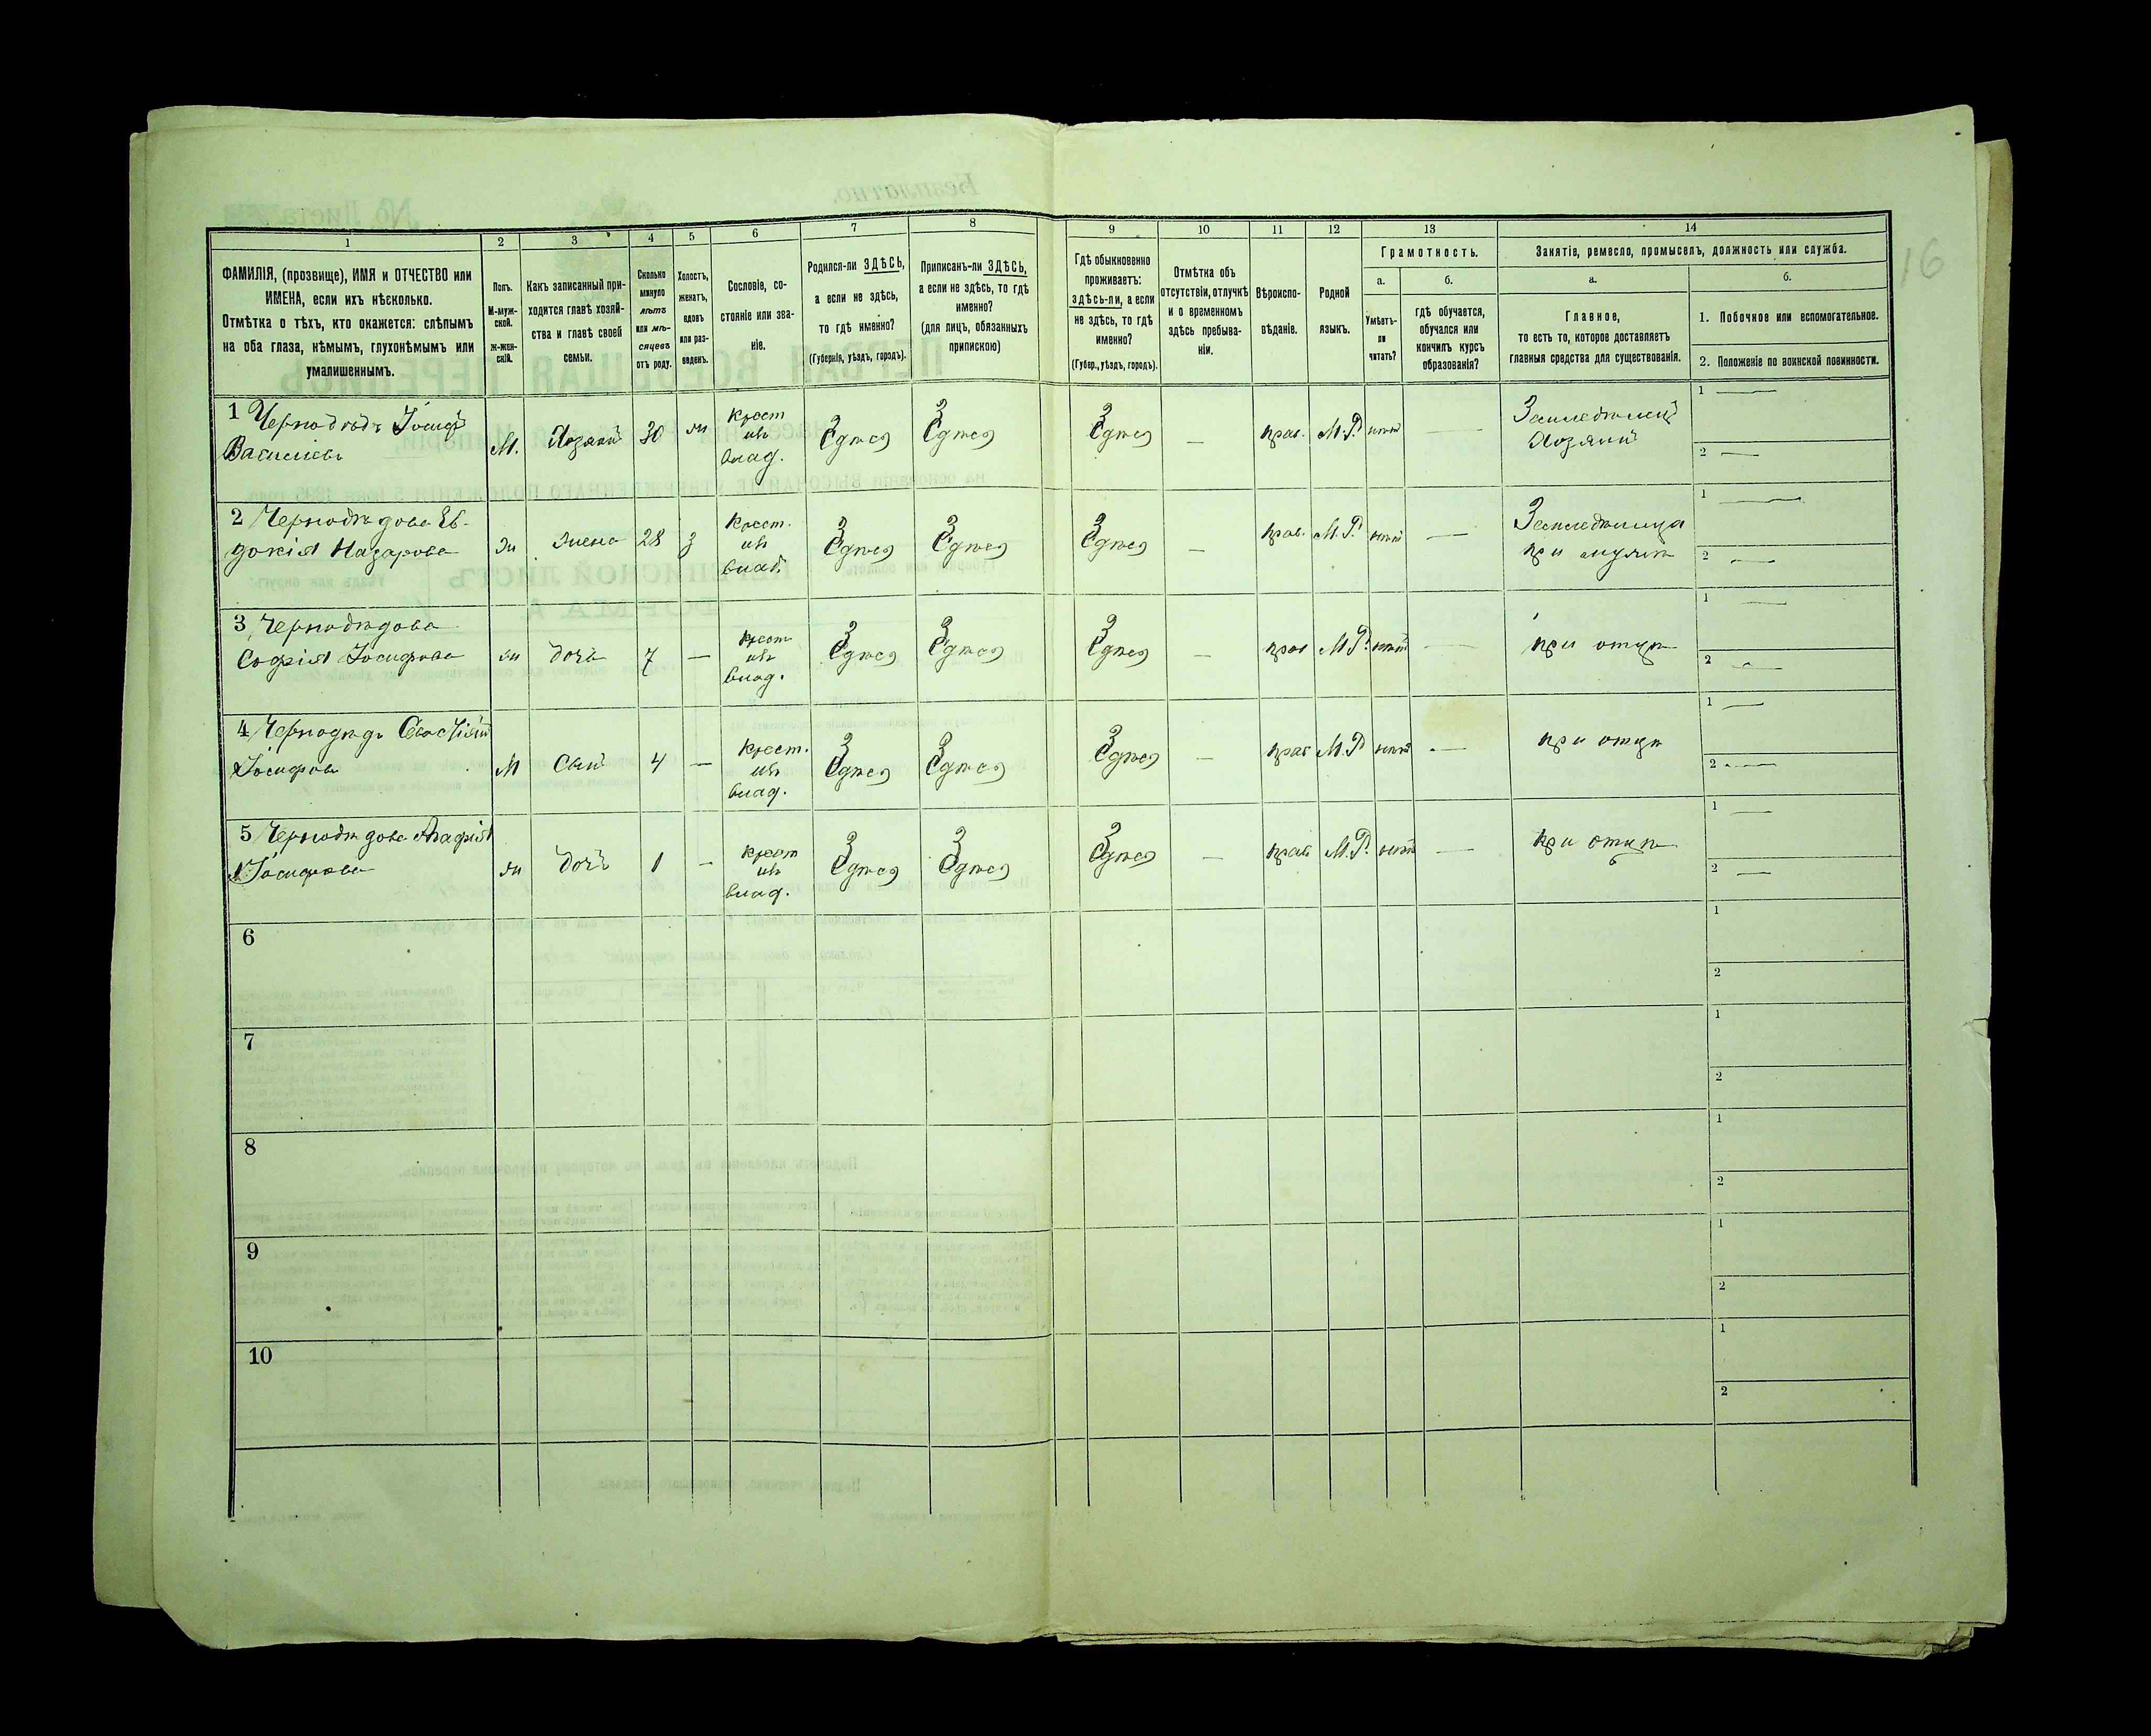 16
1
2
3
4
5
6
7
8
9
10
11
12
13
14
ФАМИЛІЯ, (прозвище), ИМЯ и ОТЧЕСТВО или
ИМЕНА, если ихъ нѣсколько.
Отмѣтка о тѣхъ, кто окажется: слѣпымъ
на оба глаза, нѣмымъ, глухонѣмымъ или
умалишеннымъ.
Полъ.
М-муж-
ской.
ж-жен-
скій.
Какъ записанный при-
ходится главѣ хозяй-
ства и главѣ своей
семьи.
Сколько
минуло
лѣтъ
или мѣ-
сяцевъ
отъ роду.
Холостъ,
женатъ,
вдовъ
или раз-
веденъ.
Сословіе, со-
стояніе или зва-
ніе.
Родился-ли ЗДѢСЬ,
а если не здѣсь,
то гдѣ именно?
(Губернія, уѣздъ, городъ).
Приписанъ-ли ЗДѢСЬ,
а если не здѣсь, то гдѣ
именно?
(для лицъ, обязанныхъ
припискою)
Гдѣ обыкновенно
проживаетъ:
здѣсь-ли, а если
не здѣсь, то гдѣ
именно?
(Губер., уѣздъ, городъ).
Отмѣтка объ
отсутствіи, отлучкѣ
и о временномъ
здѣсь пребыва-
ніи.
Вѣроиспо-
вѣданіе.
Родной
языкъ.
Грамотность.
а.
Умѣетъ-
ли
читать?
б.
гдѣ обучается,
обучался или
кончилъ курсъ
образованія?
Занятіе, ремесло, промыселъ, должность или служба.
а.
Главное,
то есть то, которое доставляетъ
главныя средства для существованія.
б.
1. Побочное или вспомогательное.
2. Положеніе по воинской повинности.
1 Чернодѣдъ Іосифъ
Васильевъ
М.
Хозяинъ
30
жн
Крест
изъ
влад.
Здѣсь
Здѣсь
Здѣсь
—
прав.
М.Р.
нѣтъ
—
Земледѣлецъ
Хозяинъ
1 —
2 —
2 Чернодѣдова Ев-
докія Назарова
жн
жена
28
з
Крест.
изъ
влад.
Здѣсь
Здѣсь
Здѣсь
—
прав.
М.Р.
нѣтъ
—
Земледѣлица
при мужѣ
1 —
2 —
3 Чернодѣдова
Софія Іосифова
жн
дочь
7
—
Крест
изъ
влад.
Здѣсь
Здѣсь
Здѣсь
—
прав
М.Р.
нѣтъ
—
при отцѣ
1 —
2 —
4 Чернодѣдъ Севастіанъ
Іосифовъ
М
Сынъ
4
—
Крест.
изъ
влад.
Здѣсь
Здѣсь
Здѣсь
—
прав
М.Р
нѣтъ
—
при отцѣ
1 —
2 —
5 Чернодѣдова Агафія
Іосифова
жн
дочь
1
—
Крест
изъ
влад.
Здѣсь
Здѣсь
Здѣсь
—
прав
М.Р.
нѣтъ
—
при отцѣ
1 —
2 —
6
1
2
7
1
2
8
1
2
9
1
2
10
1
2